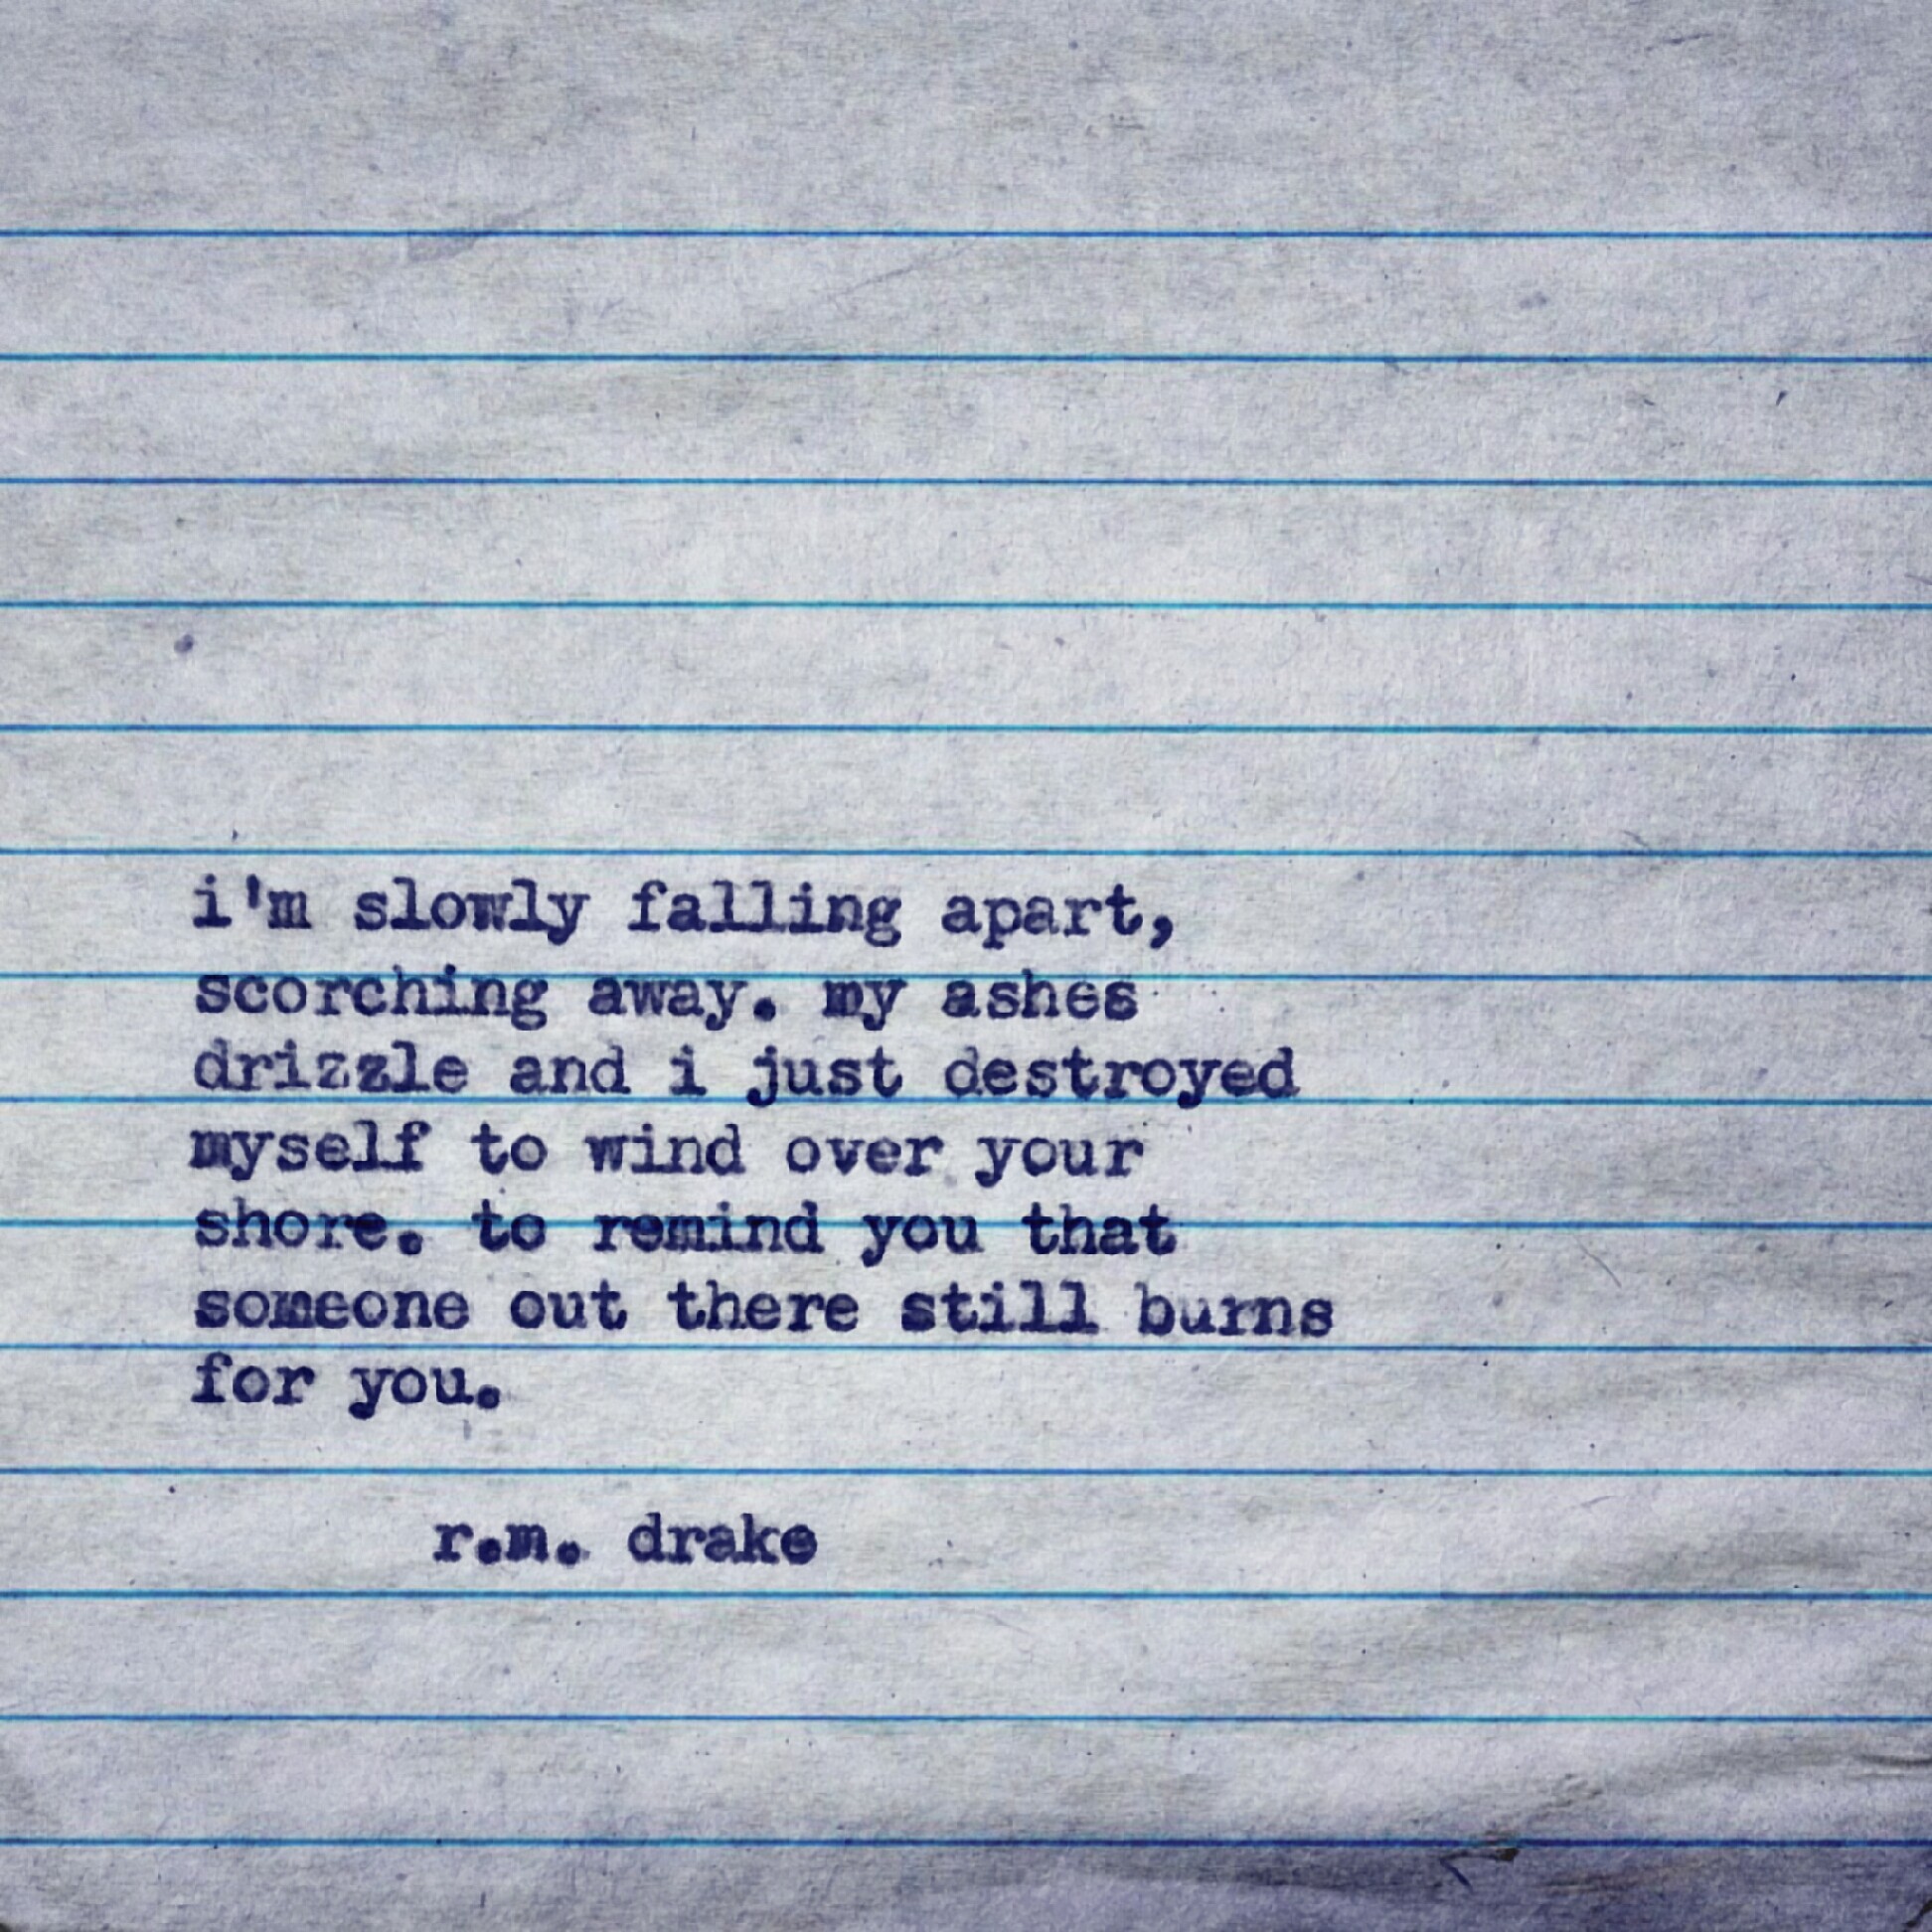 i'm slowly falling apart,
scorching away. my ashes
drizzle and i just destroyed
myself to wind over your
shore. to remind you that
someone out there still burns
for you.
r.m. drake